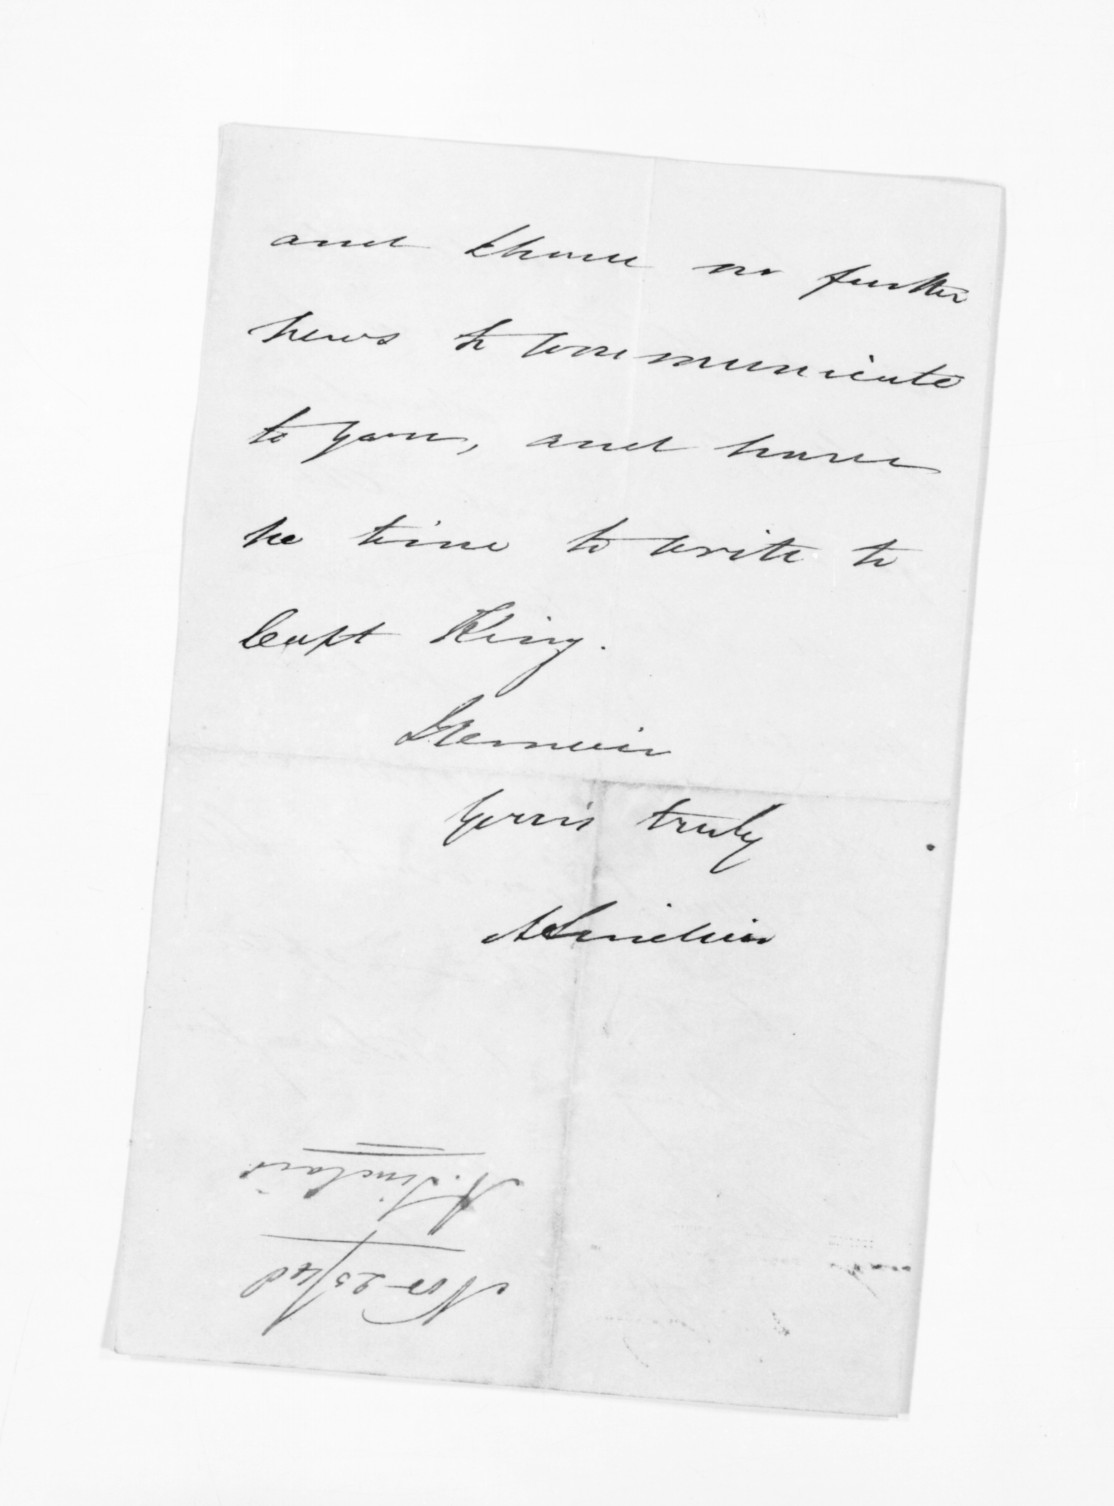 and I have no further
news to communicate
to you, and have
no time to write to
Capt King.
I Remain
Yours truly
A Sinclair
Nov 25/48
A. Sinclair